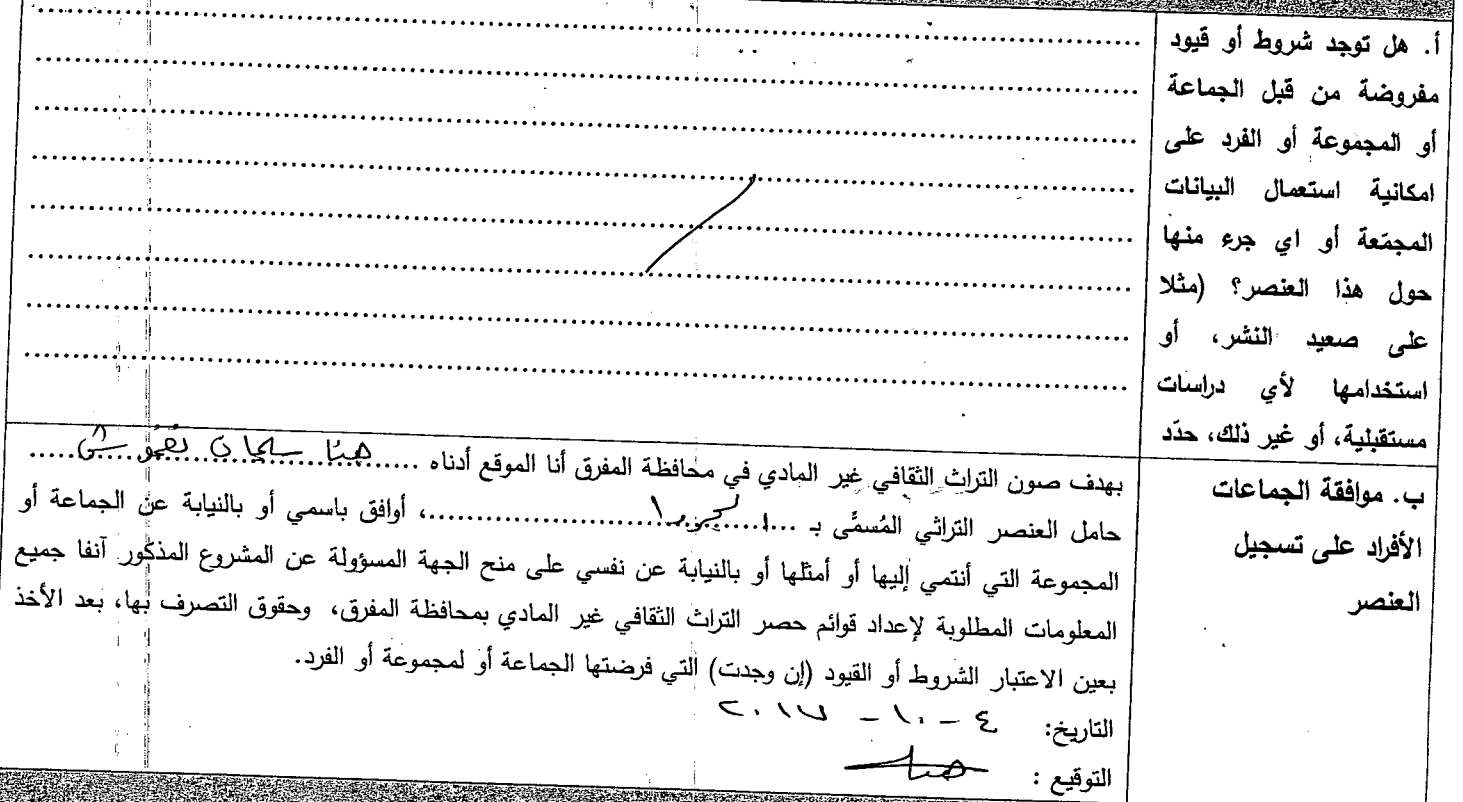 أ. هل توجد شروط أو قيود
مفروضة من قبل الجماعة
أو المجموعة أو الفرد على
امكانية استعمال البيانات
المجمّعة أو اي جرء منها
حول هذا العنصر؟ (مثلا
على صعيد النشر، أو
استخدامها لأي دراسات
مستقبلية، أو غير ذلك، حدّد
ب. موافقة الجماعات
الأفراد على تسجيل
العنصر
بهدف صون التراث الثقافي غير المادي في محافظة المفرق أنا الموقع أدناه ..... هيا سلمان
حامل العنصر التراثي المُسمَّى بـ ....................، أوافق باسمي أو بالنيابة عن الجماعة أو
المجموعة التي أنتمي إليها أو أمثلها أو بالنيابة عن نفسي على منح الجهة المسؤولة عن المشروع المذكور آنفا جميع
المعلومات المطلوبة لإعداد قوائم حصر التراث الثقافي غير المادي بمحافظة المفرق، وحقوق التصرف بها، بعد الأخذ
بعين الاعتبار الشروط أو القيود (إن وجدت) التي فرضتها الجماعة أو لمجموعة أو الفرد.
التاريخ: ٤ - ١٠ - ٢٠١٧
التوقيع : هيا